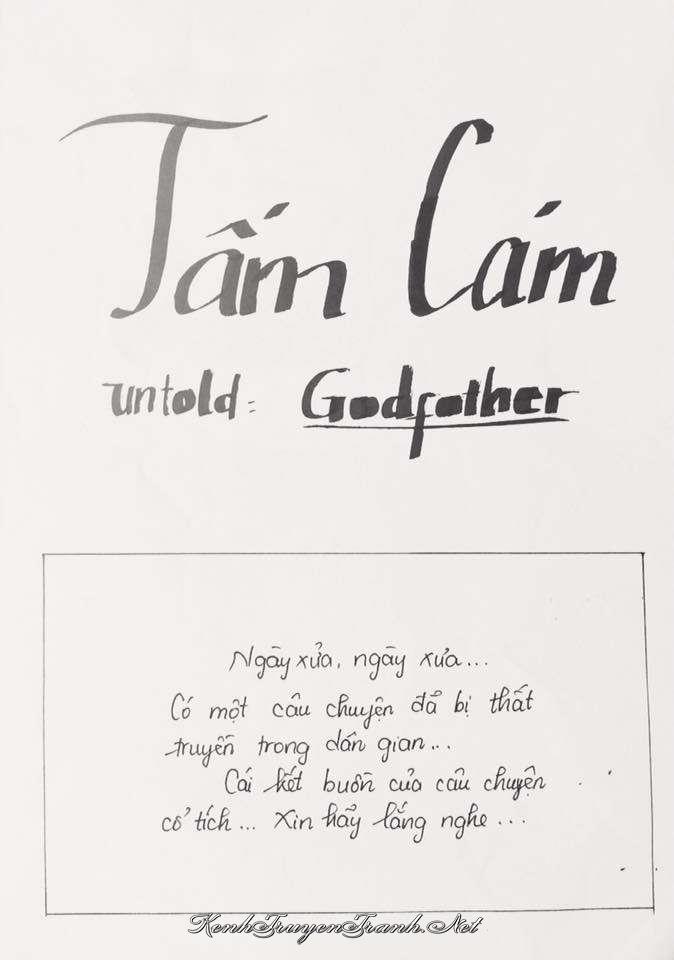 Tấm Cám
untold: Godfather
Ngày xửa, ngày xưa...
Có một câu chuyện đã bị thất
truyền trong dân gian...
Cái kết buồn của câu chuyện
cổ tích... Xin hãy lắng nghe...
KenhTruyenTranh.Net